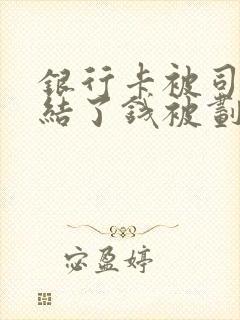 銀行卡被司
結了錢被劃
宓盈婷